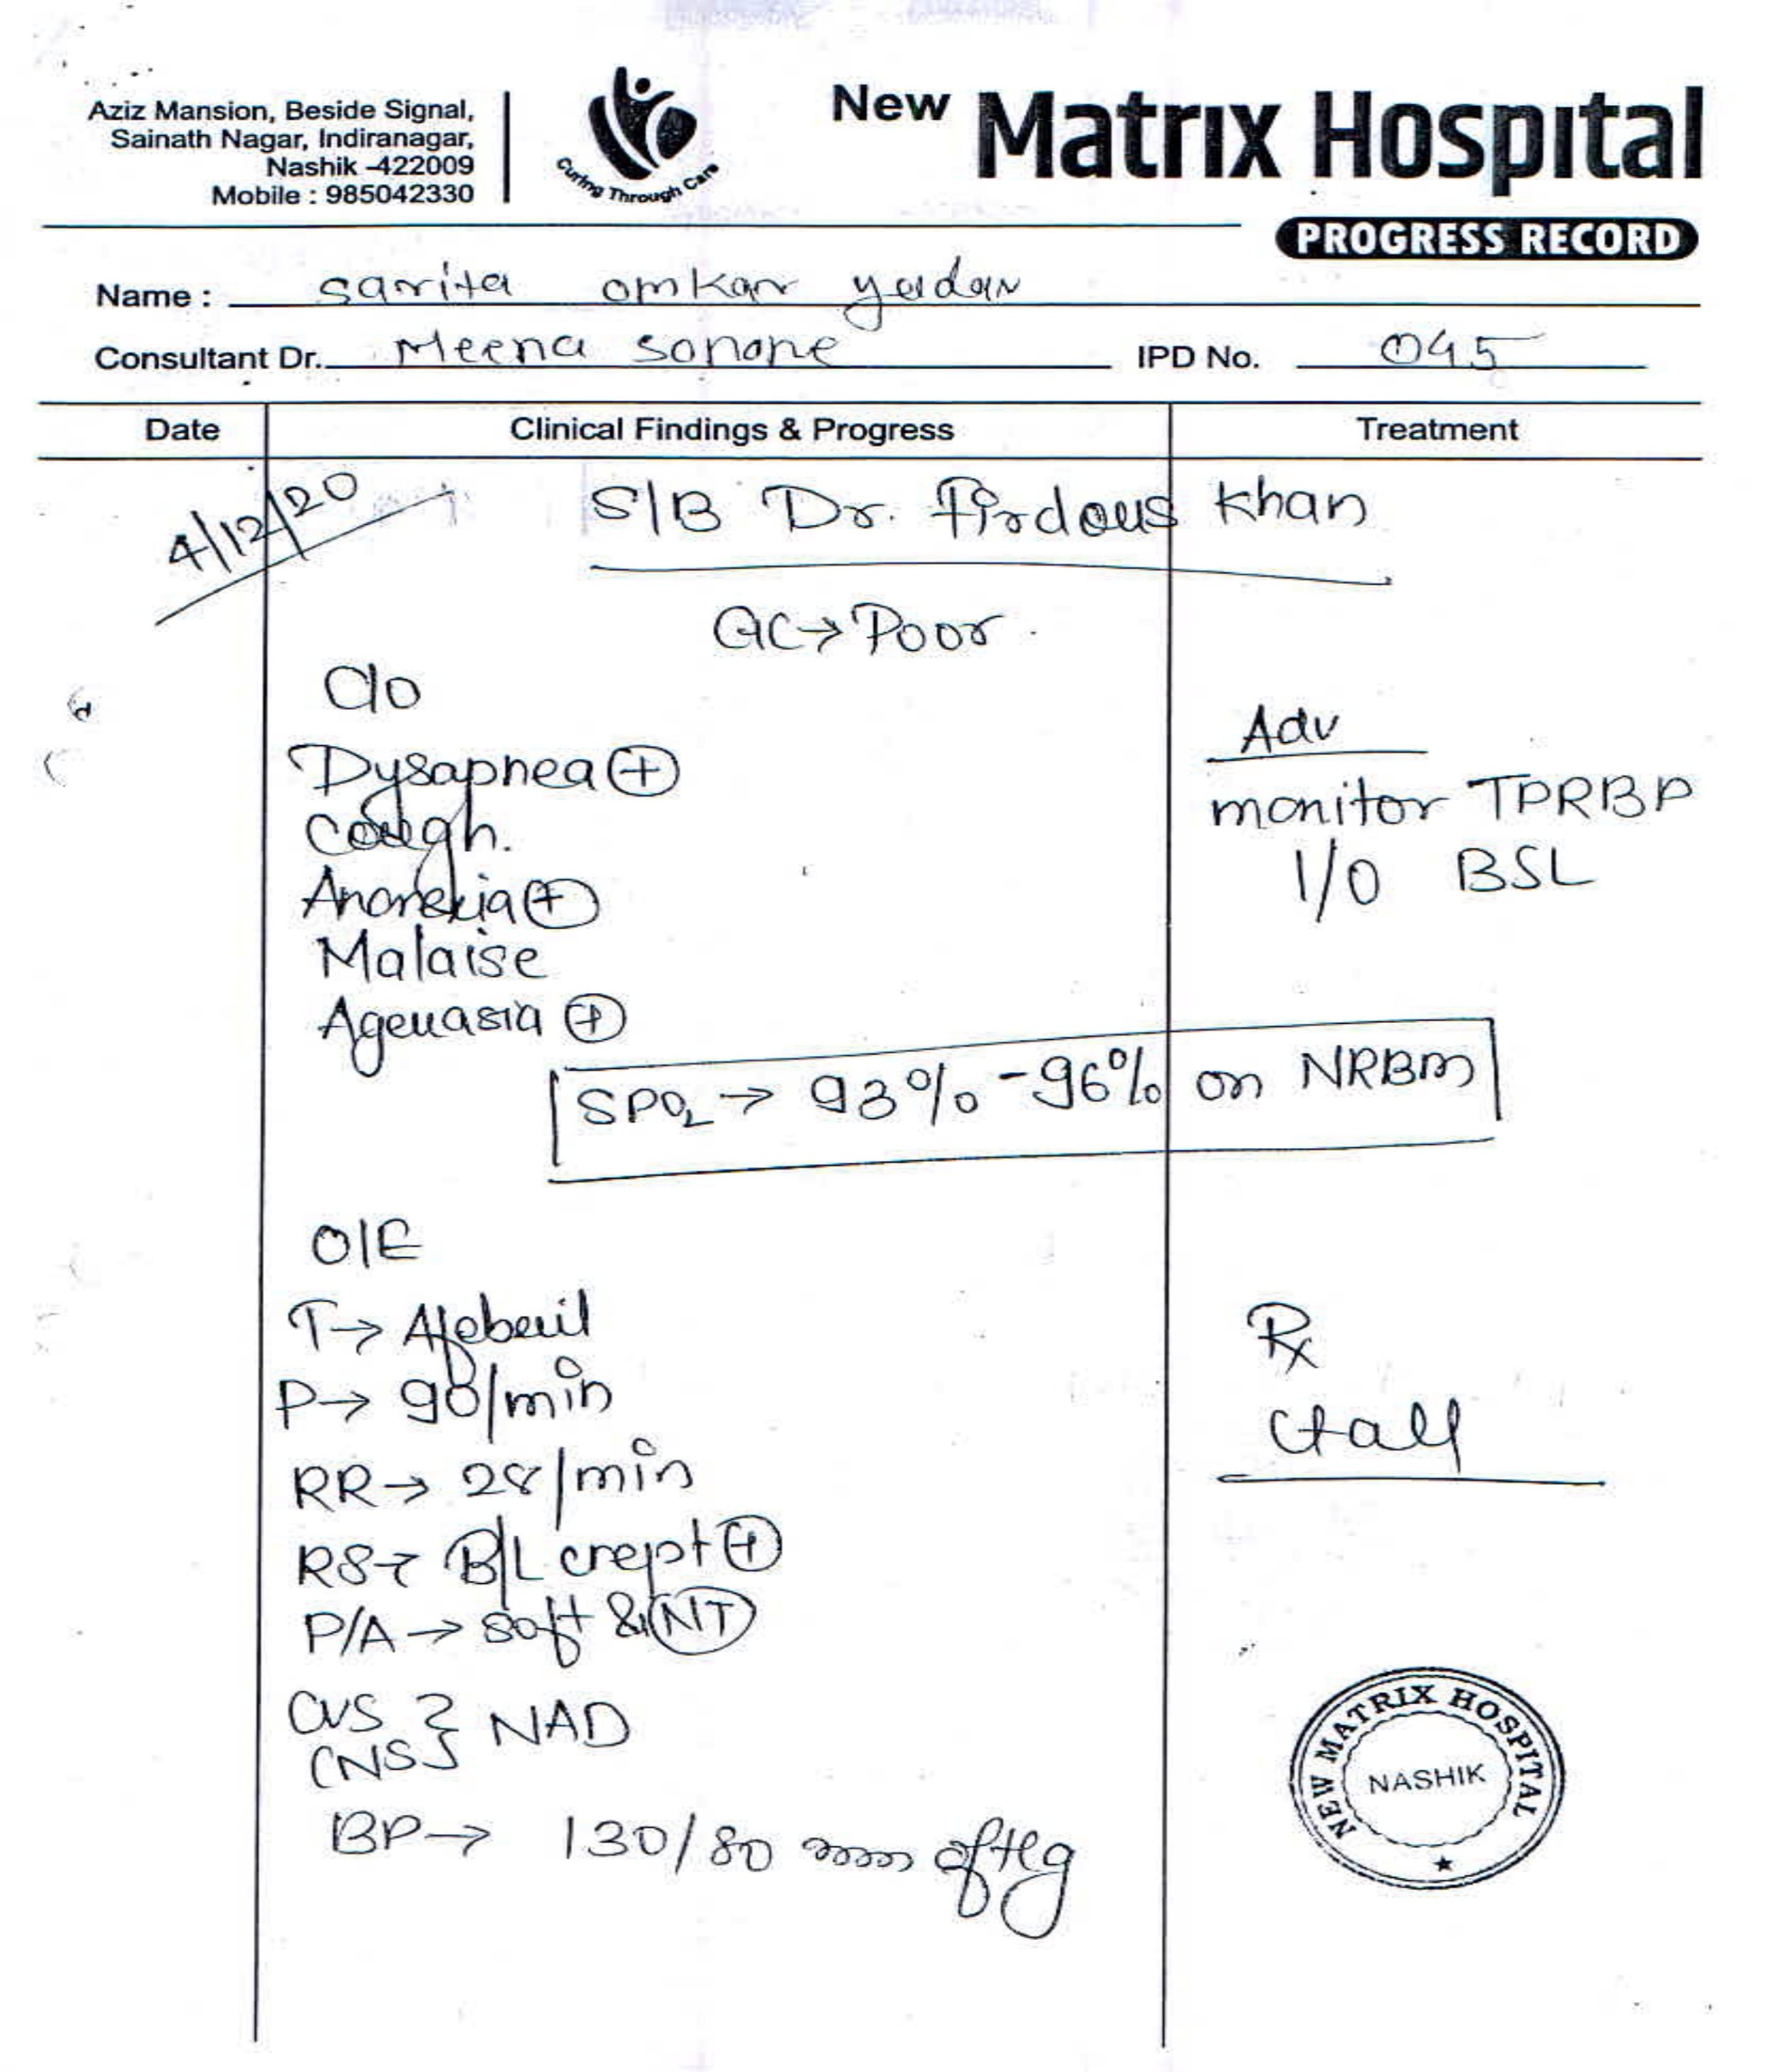 Aziz Mansion, Beside Signal,
Sainath Nagar, Indiranagar,
Nashik -422009
Mobile : 985042330
Curing Through Care
New Matrix Hospital
PROGRESS RECORD
Name : Sarita Omkar Yadav
Consultant Dr. Meena Sonone IPD No. 045
Date Clinical Findings & Progress Treatment
4/12/20 S/B Dr. Firdous Khan
GC→Poor.
C/o
Dysapnea ⊕
Cough.
Anorexia ⊕
Malaise
Ageuasia ⊕
Adv
monitor TPRBP
I/O BSL
SPO2 → 93% - 96% on NRBM
O/E
T→ Afebril
P→ 98/min
RR→ 28/min
RS→ B/L crept ⊕
P/A → soft & NT
CVS } NAD
CNS }
BP→ 130/80 mm of Hg
Rx
NEW MATRIX HOSPITAL
NASHIK